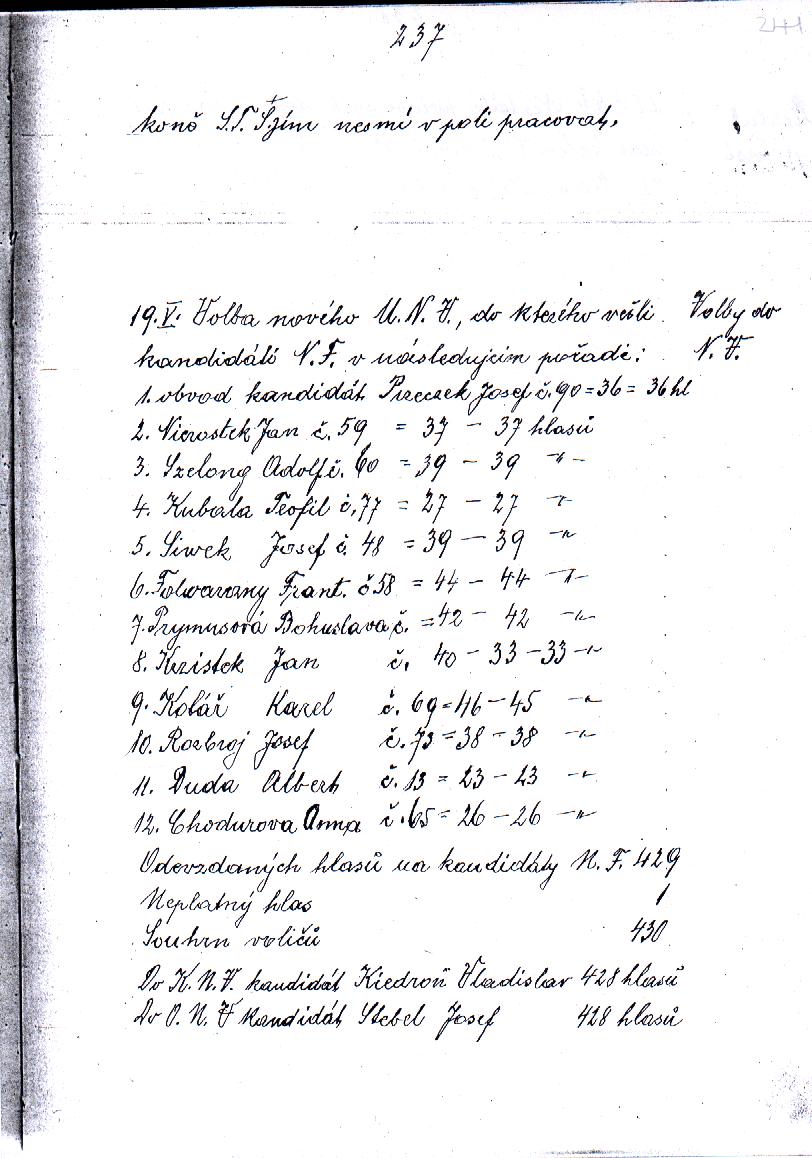 237
241
koně S.T. Šzím nesmí v poli pracovat.
19.V. Volba nového M. N. V., do kterého vešli Volby do
kandidáti N. F. v následujícím pořadí: N. V.
1. obvod kandidát Pizeczek Josef č. 90 = 36 = 36 hl
2. Nierostek Jan č. 59 = 37 - 37 hlasů
3. Szelong Adolf č. 60 = 39 - 39 -"-
4. Kubala Teofil č. 77 = 27 - 27 -"-
5. Siwek Josef č. 48 = 39 - 39 -"-
6. Folwarczny Frant. č 58 = 44 - 44 -"-
7. Prymusová Bohuslava č. = 42 - 42 -"-
8. Krzistek Jan č. 40 - 33 - 33 -"-
9. Kolář Karel č. 69 = 46 - 45 -"-
10. Rozbroj Josef č. 73 = 38 - 38 -"-
11. Duda Albert č. 13 = 23 - 23 -"-
12. Chodurova Anna č. 65 = 26 - 26 -"-
Odevzdaných hlasů na kandidáty N. F. 429
Neplatný hlas 1
Souhrn voličů 430
Do K. N. V. kandidát Kiedroň Vladislav 428 hlasů
Do O. N. V kandidát Stebel Josef 428 hlasů